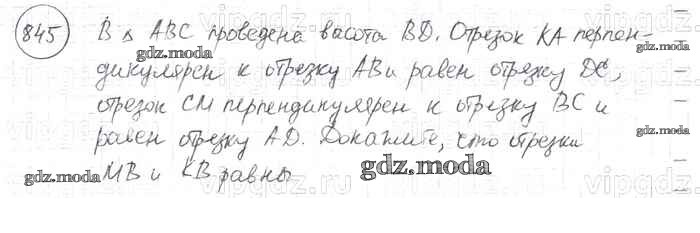 845 В △ ABC проведена высота BD. Отрезок KA перпен-
дикулярен к отрезку AB и равен отрезку DC,
отрезок CM перпендикулярен к отрезку BC и
равен отрезку AD. Докажите, что отрезки
MB и KB равны
gdz.moda
gdz.moda
gdz.moda
gdz.moda
gdz.moda
gdz.moda